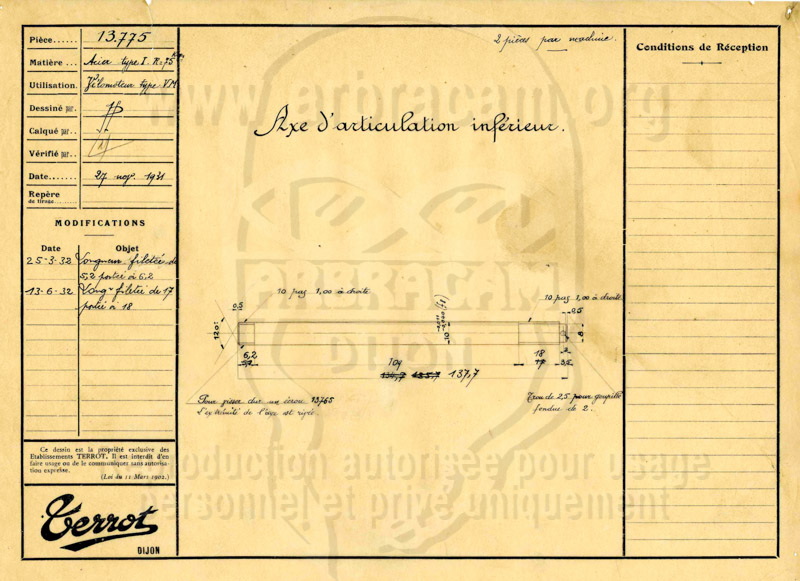 Pièce...... 13.775
Matière ... Acier type I. R=75
Utilisation. Vélomoteur type VM
Dessiné par.
Calqué par..
Vérifié par..
Date....... 27 nov. 1931
Repère
de tirage
MODIFICATIONS
Date Objet
25-3-32 Longueur filetée de
5,2 portée à 6,2
13-6-32 Longr filetée de 17
portée à 18
Ce dessin est la propriété exclusive des
Etablissements TERROT. Il est interdit d'en
faire usage ou de le communiquer sans autorisa-
tion expresse.
(Loi du 11 Mars 1902.)
Terrot
DIJON
2 pièces par machine.
www.arbracam.org
Axe d'articulation inférieur.
ARBRACAM
DIJON
10 pas 1,00 à droite.
10 pas 1,00 à droite.
0,5
0,5
120°
10
8
6,2
18
17
3,5
2
Toy
137,7
Pour visser sur un écrou 13765
L'extrémité de l'axe est rivée.
Trou de 2,5 pour goupille
fendue de 2.
Reproduction autorisée pour usage
personnel et privé uniquement
Conditions de Réception